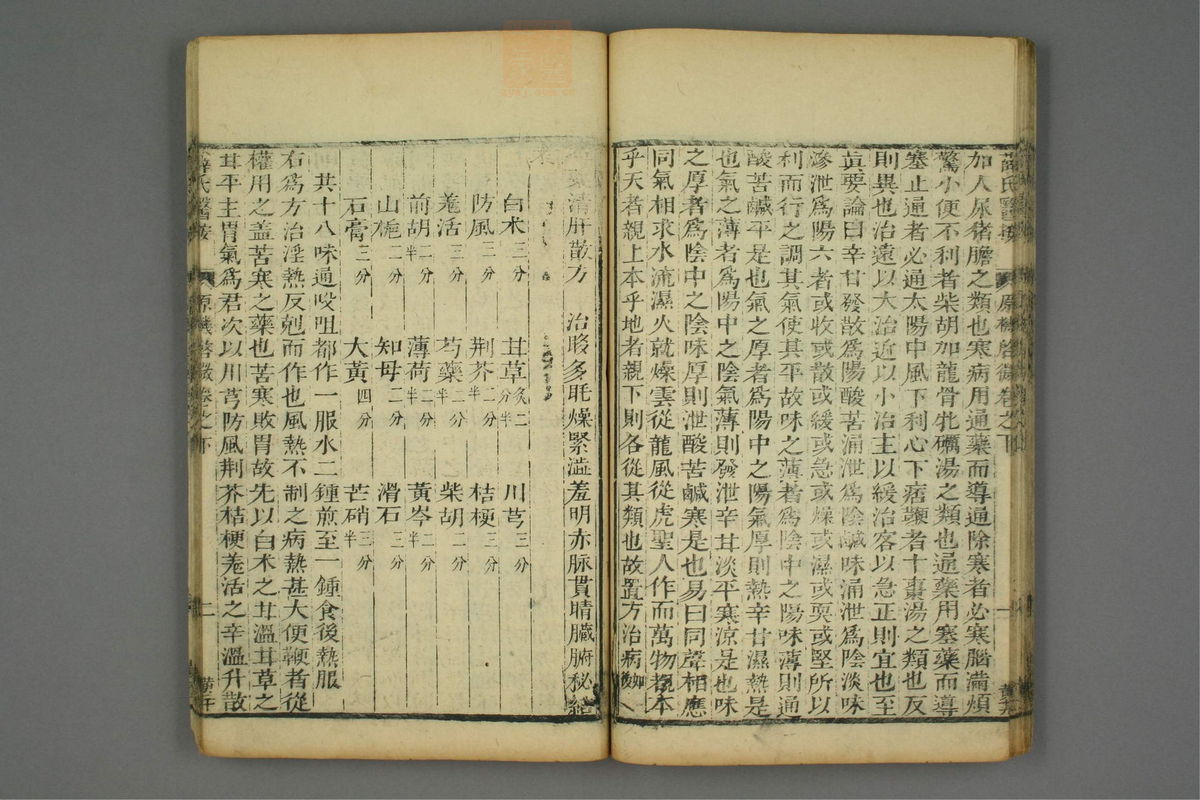 薛氏醫按 原機啓微卷之下 一
加人尿猪膽之類也寒病用通藥而導通除寒者必寒腦滿煩
驚小便不利者柴胡加龍骨牡礪湯之類也通藥用塞藥而導
塞止通者必通太陽中風下利心下痞鞕者十棗湯之類也反
則異也治遠以大治近以小治主以緩治客以急正則宜也至
眞要論曰辛甘發散爲陽酸苦涌泄爲陰鹹味涌泄爲陰淡味
滲泄爲陽六者或收或散或緩或急或燥或濕或耎或堅所以
利而行之調其氣使其平故味之薄者爲陰中之陽味薄則通
酸苦鹹平是也氣之厚者爲陽中之陽氣厚則熱辛甘濕熱是
也氣之薄者爲陽中之陰氣薄則發泄辛甘淡平寒涼是也味
之厚者爲陰中之陰味厚則泄酸苦鹹寒是也易曰同聲相應
同氣相求水流濕火就燥雲從龍風從虎聖人作而萬物覩本
乎天者親上本乎地者親下則各從其類也故置方治病如後
清肝散方 治眵多眊燥緊澁羞明赤脉貫睛臟腑秘結
白术三分 甘草炙二分半 川芎三分
防風二分 荆芥二分半 桔梗三分
羗活二分 芍藥二分半 柴胡二分
前胡二分半 薄荷二分半 黃岑二分半
山梔二分 知母二分 滑石三分
石膏三分 大黃四分 芒硝三分半
共十八味通㕮咀都作一服水二鍾煎至一鍾食後熱服
右爲方治淫熱反剋而作也風熱不制之病熱甚大便鞕者從
權用之盖苦寒之藥也苦寒敗胃故先以白术之甘溫甘草之
甘平主胃氣爲君次以川芎防風荆芥桔梗羗活之辛溫升散
薛氏醫按 原機啓微卷之下 二